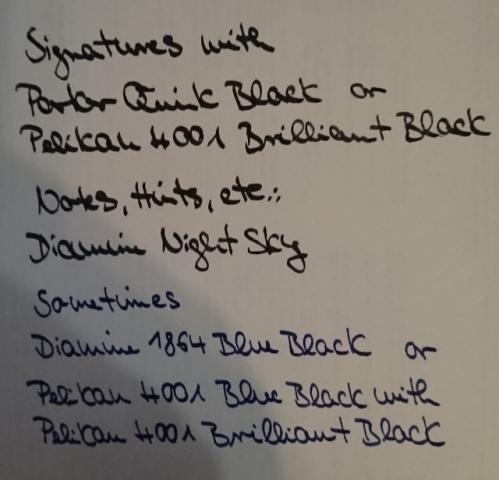 Signatures with
Parker Quink Black or
Pelikan 4001 Brilliant Black
Notes, Hints, etc.:
Diamine Night Sky
Sometimes
Diamine 1864 Blue Black or
Pelikan 4001 Blue Black with
Pelikan 4001 Brilliant Black